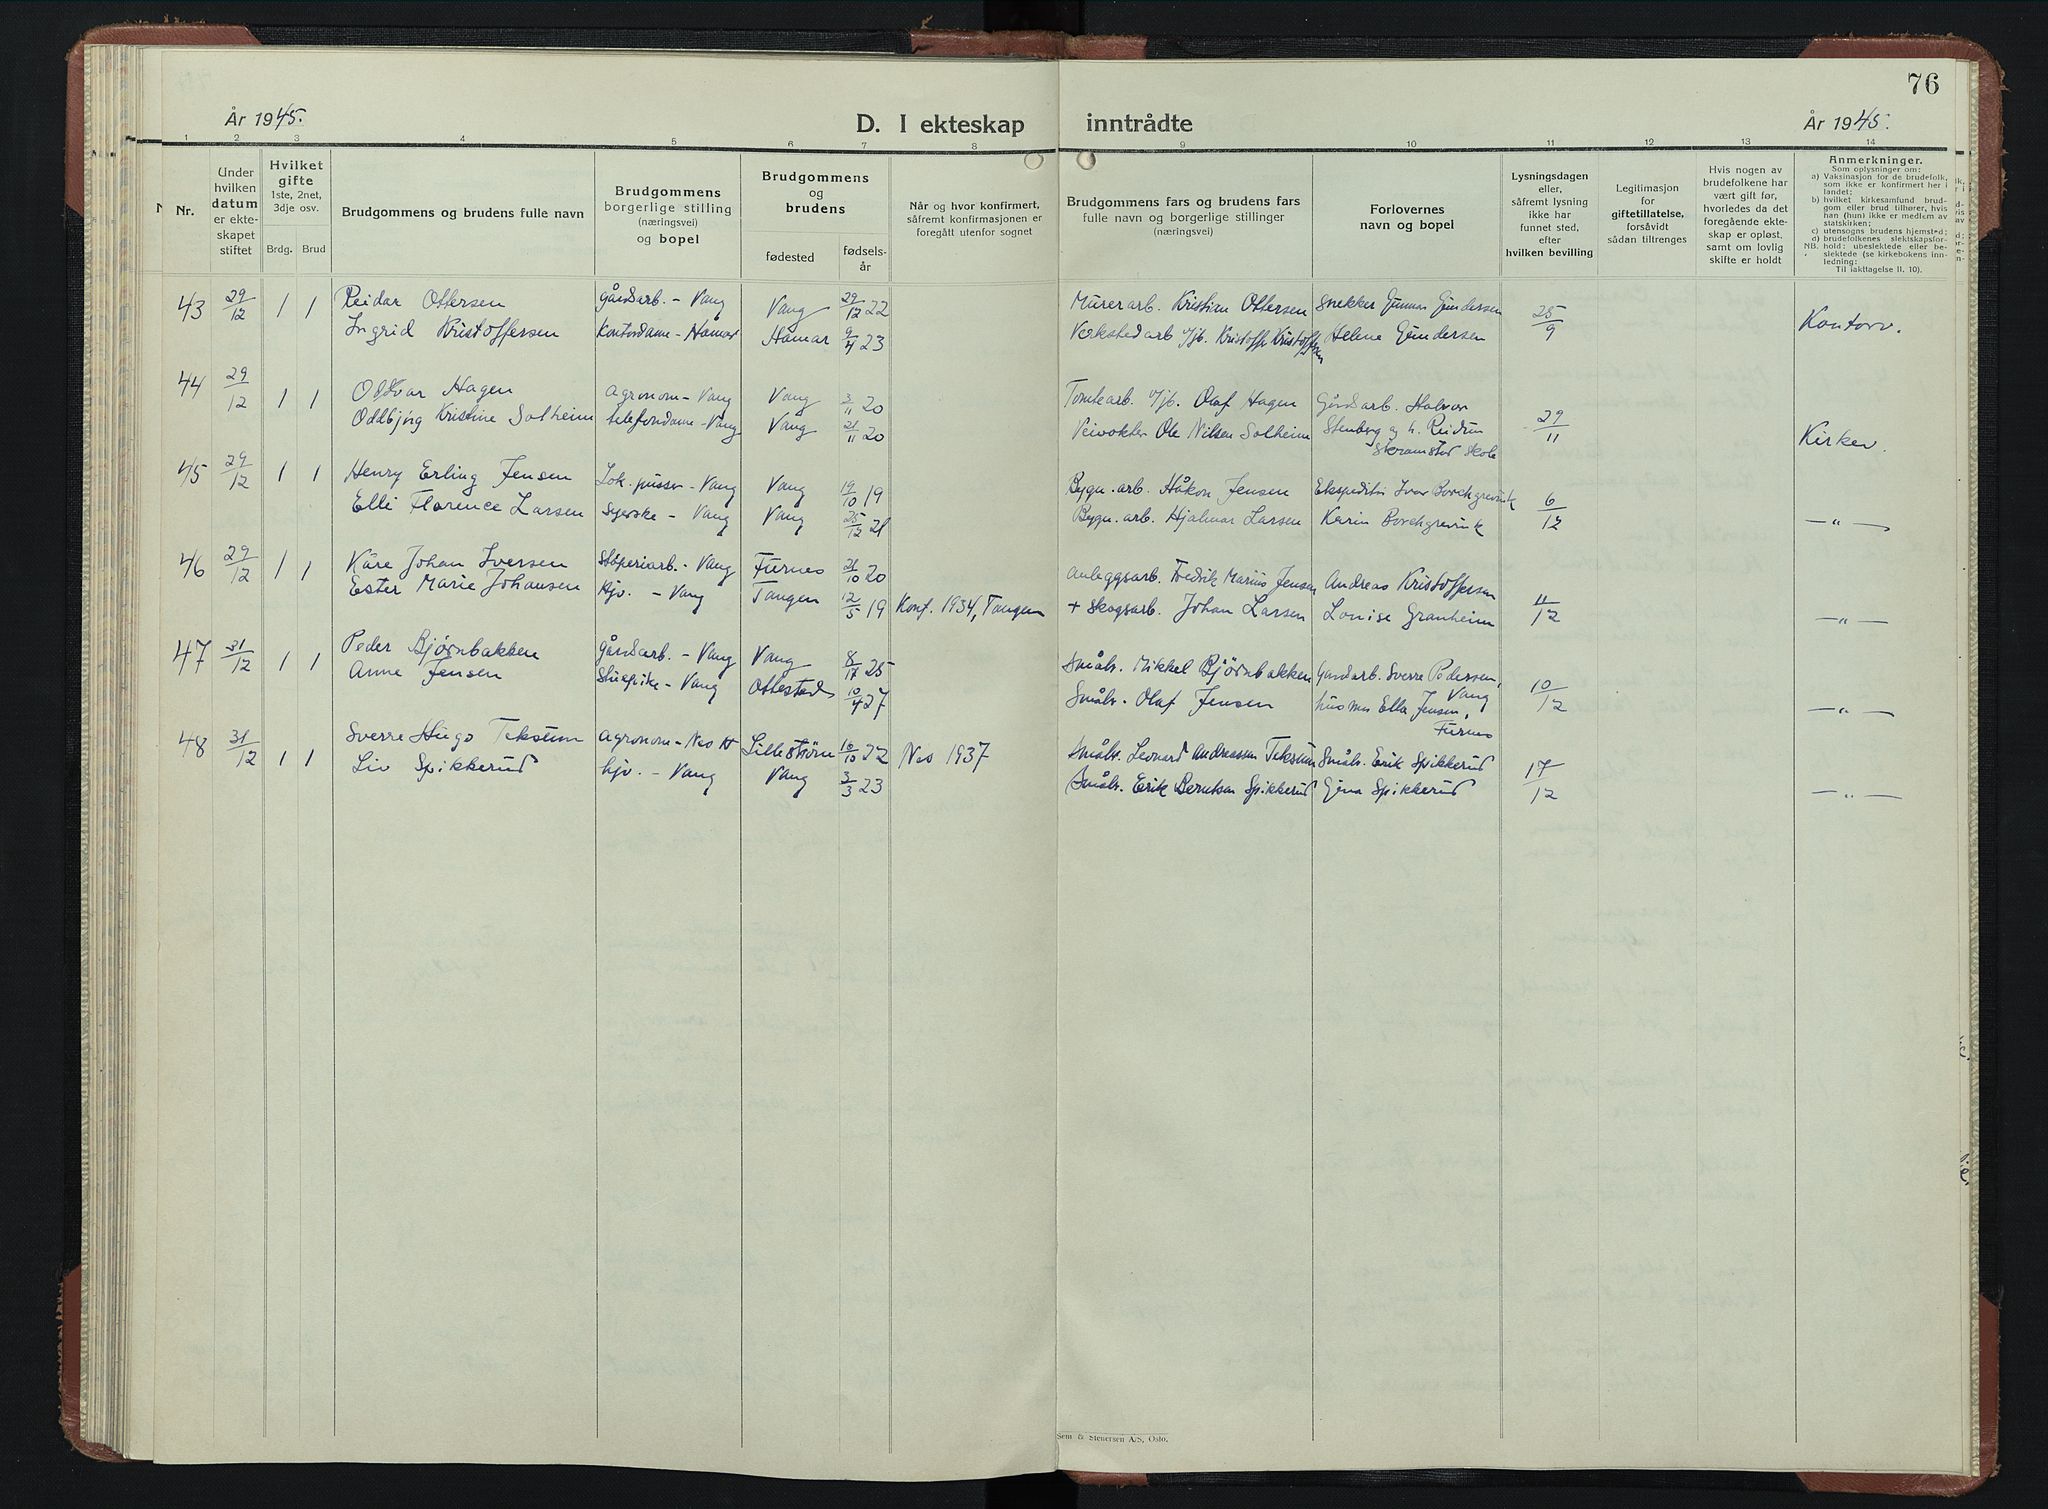 76
År 1945.
D. I ekteskap inntrådte
År 1945.
1 2 3 4 5 6 7 8 9 10 11 12 13 14
Nr.
Under
hvilken
datum
er ekte-
skapet
stiftet
Hvilket
gifte
1ste, 2net,
3dje osv.
Brdg. Brud
Brudgommens og brudens fulle navn
Brudgommens
borgerlige stilling
(næringsvei)
og bopel
Brudgommens
og
brudens
fødested
fødsels-
år
Når og hvor konfirmert,
såfremt konfirmasjonen er
foregått utenfor sognet
Brudgommens fars og brudens fars
fulle navn og borgerlige stillinger
(næringsvei)
Forlovernes
navn og bopel
Lysningsdagen
eller,
såfremt lysning
ikke har
funnet sted,
efter
hvilken bevilling
Legitimasjon
for
giftetillatelse,
forsåvidt
sådan tiltrenges
Hvis nogen av
brudefolkene har
vært gift før,
hvorledes da det
foregående ekte-
skap er opløst,
samt om lovlig
skifte er holdt
Anmerkninger.
Som oplysninger om:
a) Vaksinasjon for de brudefolk,
som ikke er konfirmert her i
landet;
b) hvilket kirkesamfund brud-
gom eller brud tilhører, hvis
han (hun) ikke er medlem av
statskirken;
c) utensogns brudens hjemsted;
d) brudefolkenes slektskapsfor-
NB. hold: ubeslektede eller be-
slektede (se kirkebokens inn-
ledning:
Til iakttagelse II. 10).
43 29/12 1 1 Reidar Ottersen Gårdsarb. - Vang Vang 29/12 22 Murerarb. Kristian Ottersen Snekker Gunnar Gundersen 25/9 Kontorv.
Ingrid Kristoffersen Kontordame - Hamar Hamar 9/4 23 Verkstedarb v/jb. Kristoffer Kristoffersen Helene Gundersen
44 29/12 1 1 Oddvar Hagen Agronom - Vang Vang 3/11 20 Tomtearb. v/jb. Olaf Hagen Gårdsarb. Halvor
Oddbjörg Kristine Solheim telefondame - Vang Vang 21/11 20 Veivokter Ole Nilsen Solheim Stenberg og h. Reidun 29/11 Kirkev.
Skramstad Skole
45 29/12 1 1 Henry Erling Jensen Lok.pusser - Vang Vang 19/10 19 Bygn. arb. Håkon Jensen Ekspeditør Ivar Borchgrevink 6/12
Elli Florence Larsen Syerske - Vang Vang 25/12 21 Bygn. arb. Hjalmar Larsen Karin Borchgrevink —„—
46 29/12 1 1 Kåre Johan Iversen Støperiarb. - Vang Furnes 21/10 20 Anleggsarb. Fredrik Marius Jensen Andreas Kristoffersen
Ester Marie Johansen Hjv. - Vang Tangen 12/5 19 Konf. 1934, Tangen + Skogsarb. Johan Larsen Louise Granheim 11/12 —„—
47 31/12 1 1 Peder Bjørnbakken Gårdsarb. - Vang Vang 8/17 25 Småbr. Mikkel Bjørnbakken Gardarb. Sverre Pedersen, Vang
Anne Jensen Stuepike - Vang Ottestad 10/4 27 Småbr. Olaf Jensen husmor Ella Jensen, Furnes 10/12 —„—
48 31/12 1 1 Sverre Hugo Teksum Agronom - Nes H Lillestrøm 16/10 22 Nes 1937 Småbr. Leonard Andreassen Teksum Småbr. Erik Spikkerud 17/12
Liv Spikkerud hjv. - Vang Vang 3/3 23 Småbr. Erik Berntsen Spikkerud Gina Spikkerud —„—
Sem & Stenersen A/S, Oslo.